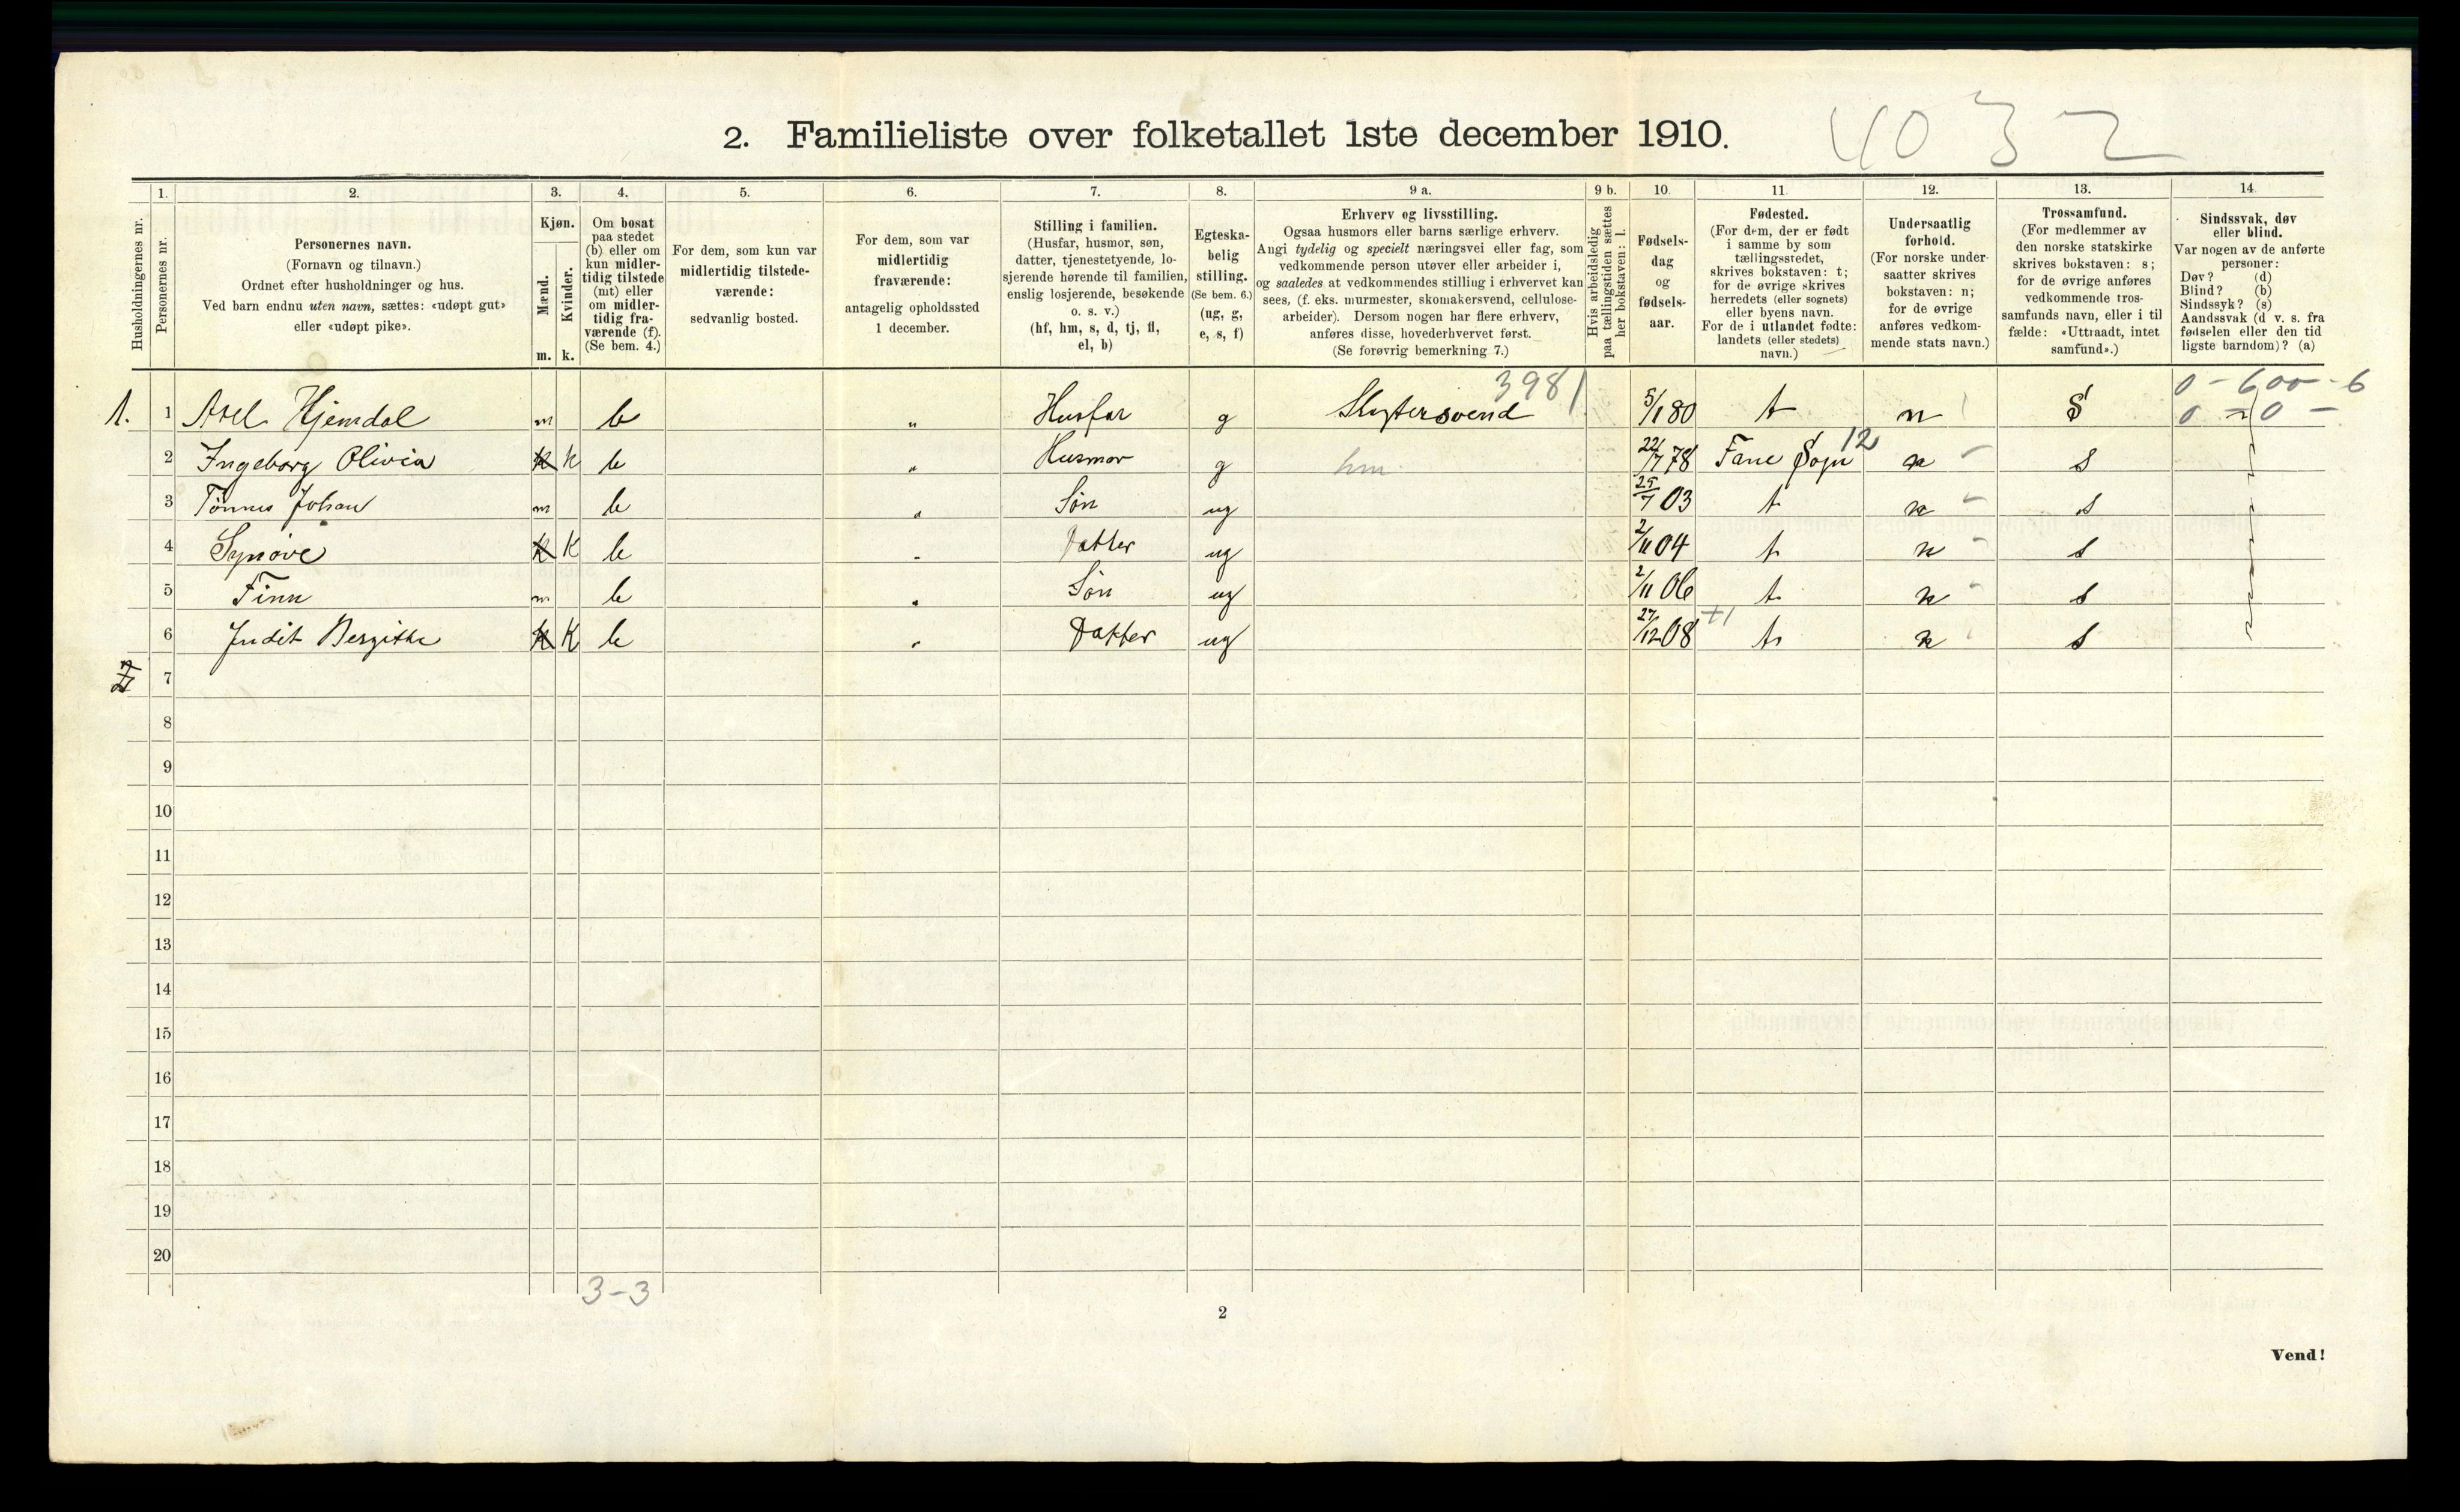 2. Familieliste over folketallet 1ste december 1910.
4032
1. 2. 3. 4. 5. 6. 7. 8. 9 a. 9 b. 10. 11. 12. 13. 14.
Husholdningernes nr.
Personernes nr.
Personernes navn.
(Fornavn og tilnavn.)
Ordnet efter husholdninger og hus.
Ved barn endnu uten navn, sættes: «udøpt gut»
eller «udøpt pike».
Kjøn.
Mænd.
Kvinder.
m. k.
Om bosat
paa stedet
(b) eller om
kun midler-
tidig tilstede
(mt) eller
om midler-
tidig fra-
værende (f).
(Se bem. 4.)
For dem, som kun var
midlertidig tilstede-
værende:
sedvanlig bosted.
For dem, som var
midlertidig
fraværende:
antagelig opholdssted
1 december.
Stilling i familien.
(Husfar, husmor, søn,
datter, tjenestetyende, lo-
sjerende hørende til familien,
enslig losjerende, besøkende
o. s. v.)
(hf, hm, s, d, tj, fl,
el, b)
Egteska-
belig
stilling.
(Se bem. 6.)
(ug, g,
e, s, f)
Erhverv og livsstilling.
Ogsaa husmors eller barns særlige erhverv.
Angi tydelig og specielt næringsvei eller fag, som
vedkommende person utøver eller arbeider i,
og saaledes at vedkommendes stilling i erhvervet kan
sees, (f. eks. murmester, skomakersvend, cellulose-
arbeider). Dersom nogen har flere erhverv,
anføres disse, hovederhvervet først.
(Se forøvrig bemerkning 7.)
Hvis arbeidsledig
paa tællingstiden sættes
her bokstaven: l.
Fødsels-
dag
og
fødsels-
aar.
Fødested.
(For dem, der er født
i samme by som
tællingsstedet,
skrives bokstaven: t;
for de øvrige skrives
herredets (eller sognets)
eller byens navn.
For de i utlandet fødte:
landets (eller stedets)
navn.)
Undersaatlig
forhold.
(For norske under-
saatter skrives
bokstaven: n;
for de øvrige
anføres vedkom-
mende stats navn.)
Trossamfund.
(For medlemmer av
den norske statskirke
skrives bokstaven: s;
for de øvrige anføres
vedkommende tros-
samfunds navn, eller i til
fælde: «Uttraadt, intet
samfund».)
Sindssvak, døv
eller blind.
Var nogen av de anførte
personer:
Døv? (d)
Blind? (b)
Sindssyk? (s)
Aandssvak (d v. s. fra
fødselen eller den tid
ligste barndom)? (a)
3981 0 - 600 - 6
1. 1 Axel Hjemdal m b " Husfar g Slagtersvend 5/1 80 t n S 0 - 0 -
2 Ingeborg Olivia k b " Husmor g hm 22/7 78 Fane Sogn 12 n s
3 Tønnes Johan m b " Søn ug 25/7 03 t n s
4 Synøve K b " Datter ug 2/11 04 t n s
5 Finn m b " Søn ug 2/11 06 t n s
6 Judit Bergithe K b " Datter ug 27/12 08 t n s
7
8
9
10
11
12
13
14
15
16
17
18
19
20
3-3
2
Vend!